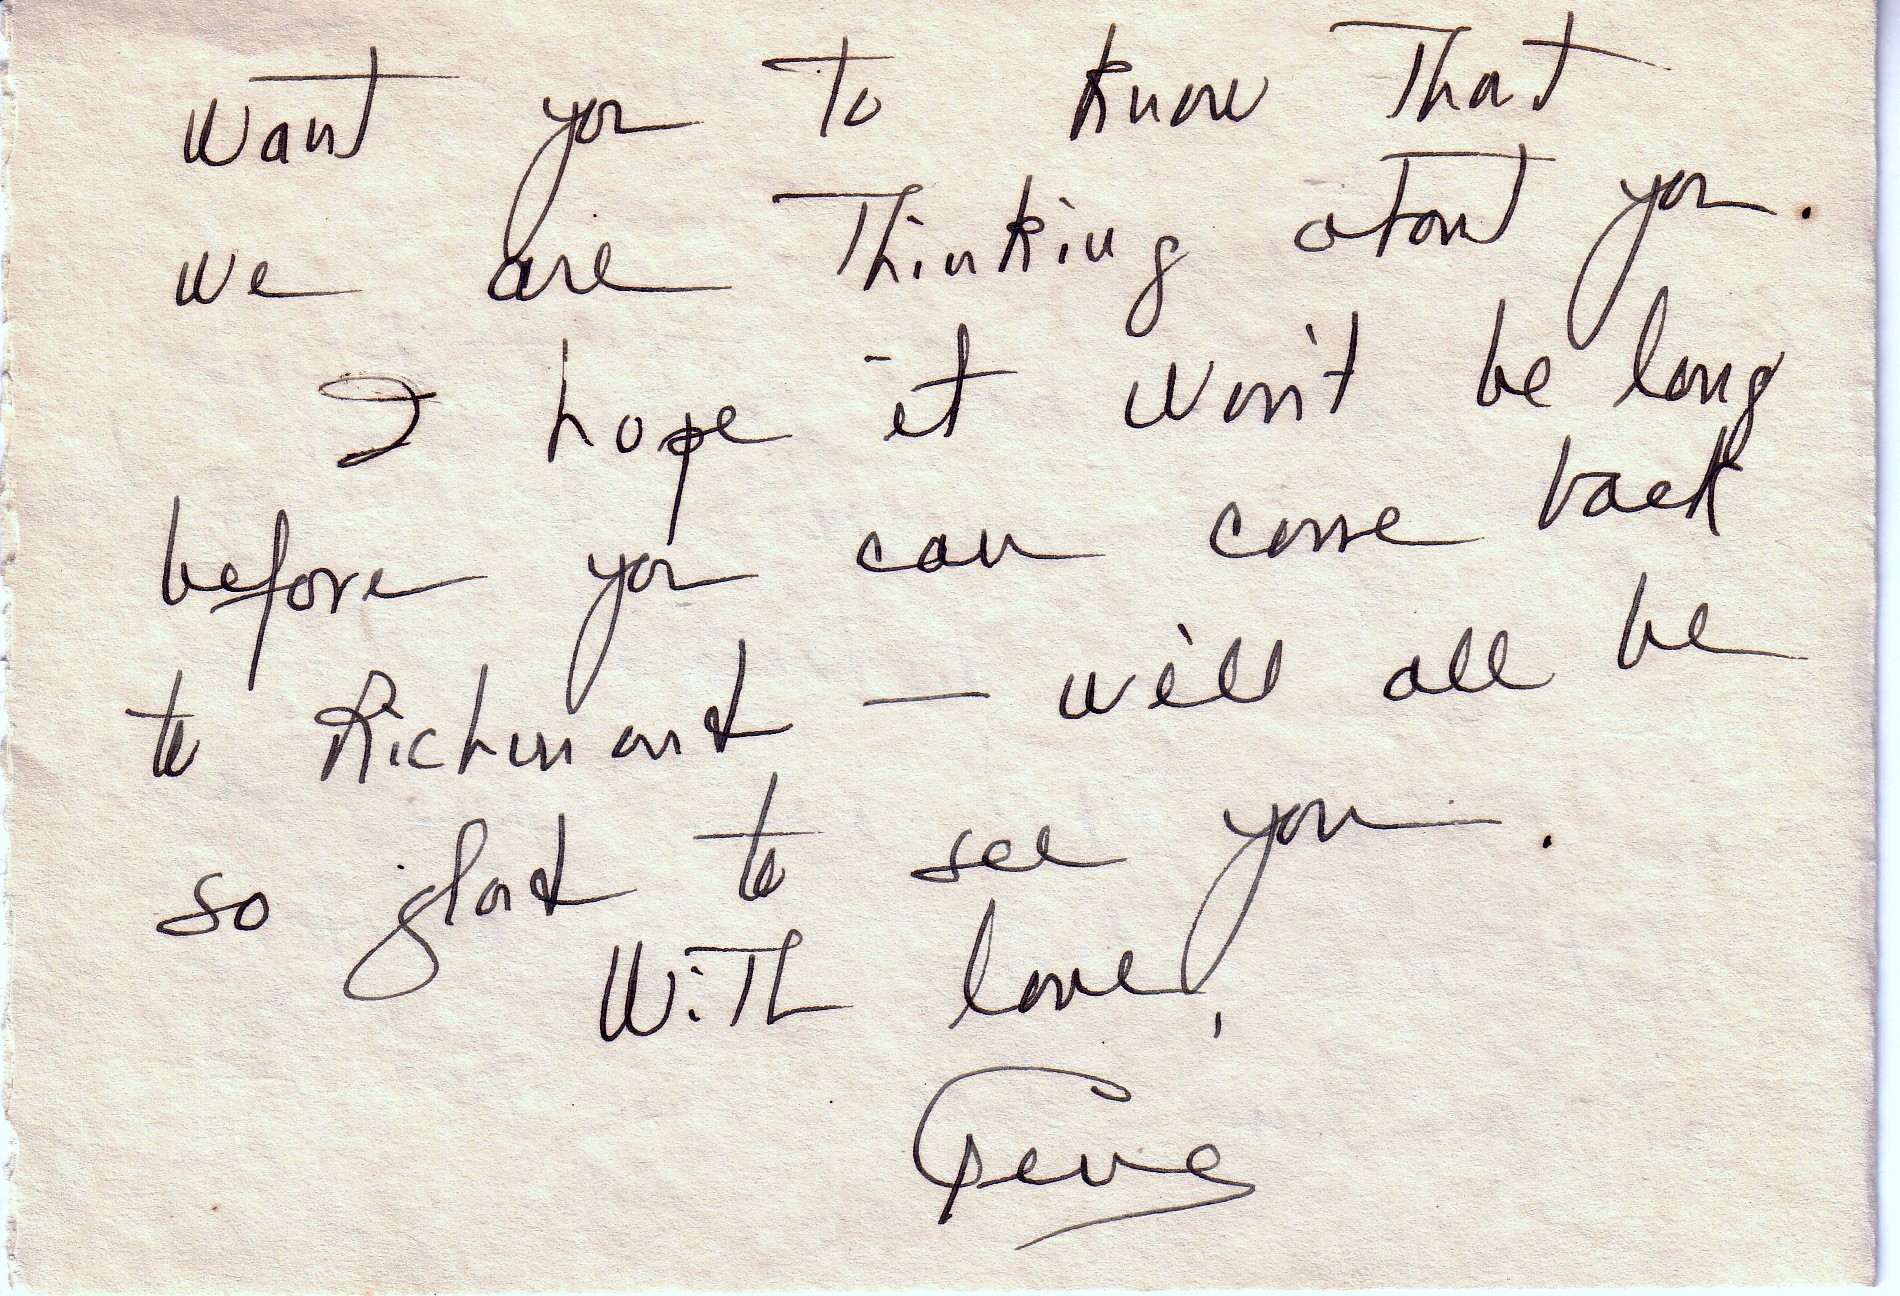 want you to know that
we are thinking about you.
I hope it won't be long
before you can come back
to Richmond — we'll all be
so glad to see you.
With love,